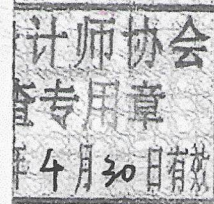 计师协会
查专用章
年4月30日有效